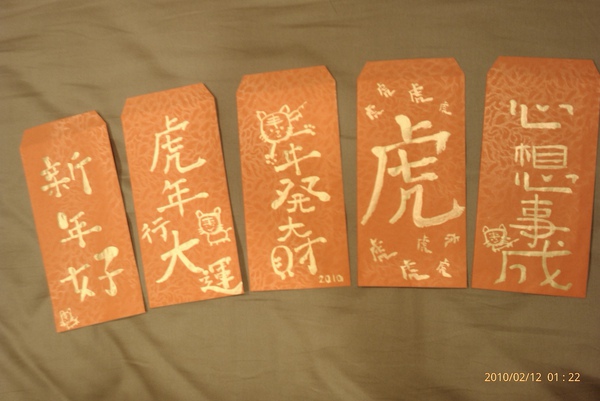 新年好
虎年行大運
年發大財
2010
虎虎虎虎
虎
虎虎
虎虎
心想事成
2010/02/12 01:22